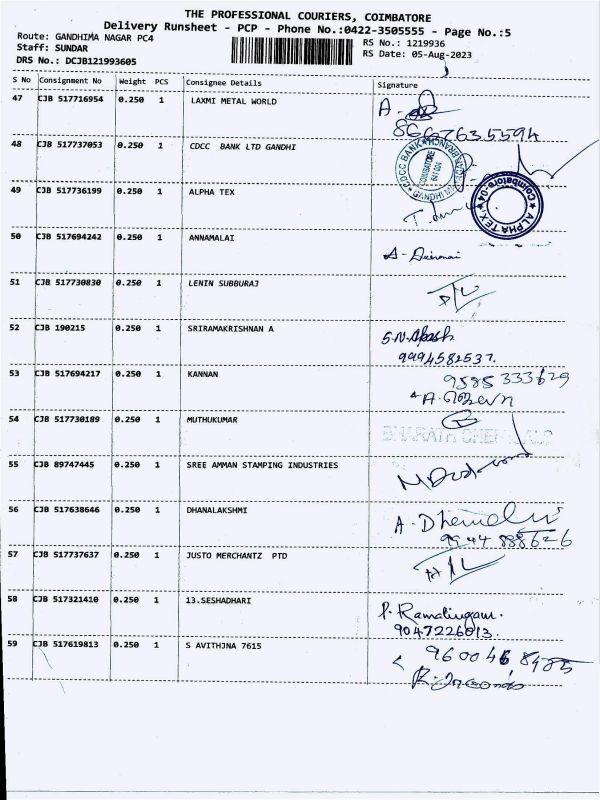 THE PROFESSIONAL COURIERS, COIMBATORE
Delivery Runsheet - PCP - Phone No.:0422-3505555 - Page No.:5
Route: GANDHIMA NAGAR PC4
RS No.: 1219936
Staff: SUNDAR
RS Date: 05-Aug-2023
DRS No.: DCJB121993605
S No Consignment No Weight PCS Consignee Details Signature
47 CJB 517716954 0.250 1 LAXMI METAL WORLD
8667635594
48 CJB 517737053 0.250 1 CDCC BANK LTD GANDHI
CDCC BANK
COIMBATORE
641 004
49 CJB 517736199 0.250 1 ALPHA TEX
ALPHA TEX
Coimbatore-04
50 CJB 517694242 0.250 1 ANNAMALAI
51 CJB 517730830 0.250 1 LENIN SUBBURAJ
52 CJB 190215 0.250 1 SRIRAMAKRISHNAN A
9994582537.
53 CJB 517694217 0.250 1 KANNAN
9585 333629
54 CJB 517730189 0.250 1 MUTHUKUMAR
BHARATH CHEMICALS
55 CJB 89747445 0.250 1 SREE AMMAN STAMPING INDUSTRIES
56 CJB 517638646 0.250 1 DHANALAKSHMI
57 CJB 517737637 0.250 1 JUSTO MERCHANTZ PTD
58 CJB 517321410 0.250 1 13.SESHADHARI
P. Ramalingam.
9047226013.
59 CJB 517619813 0.250 1 S AVITHJNA 7615